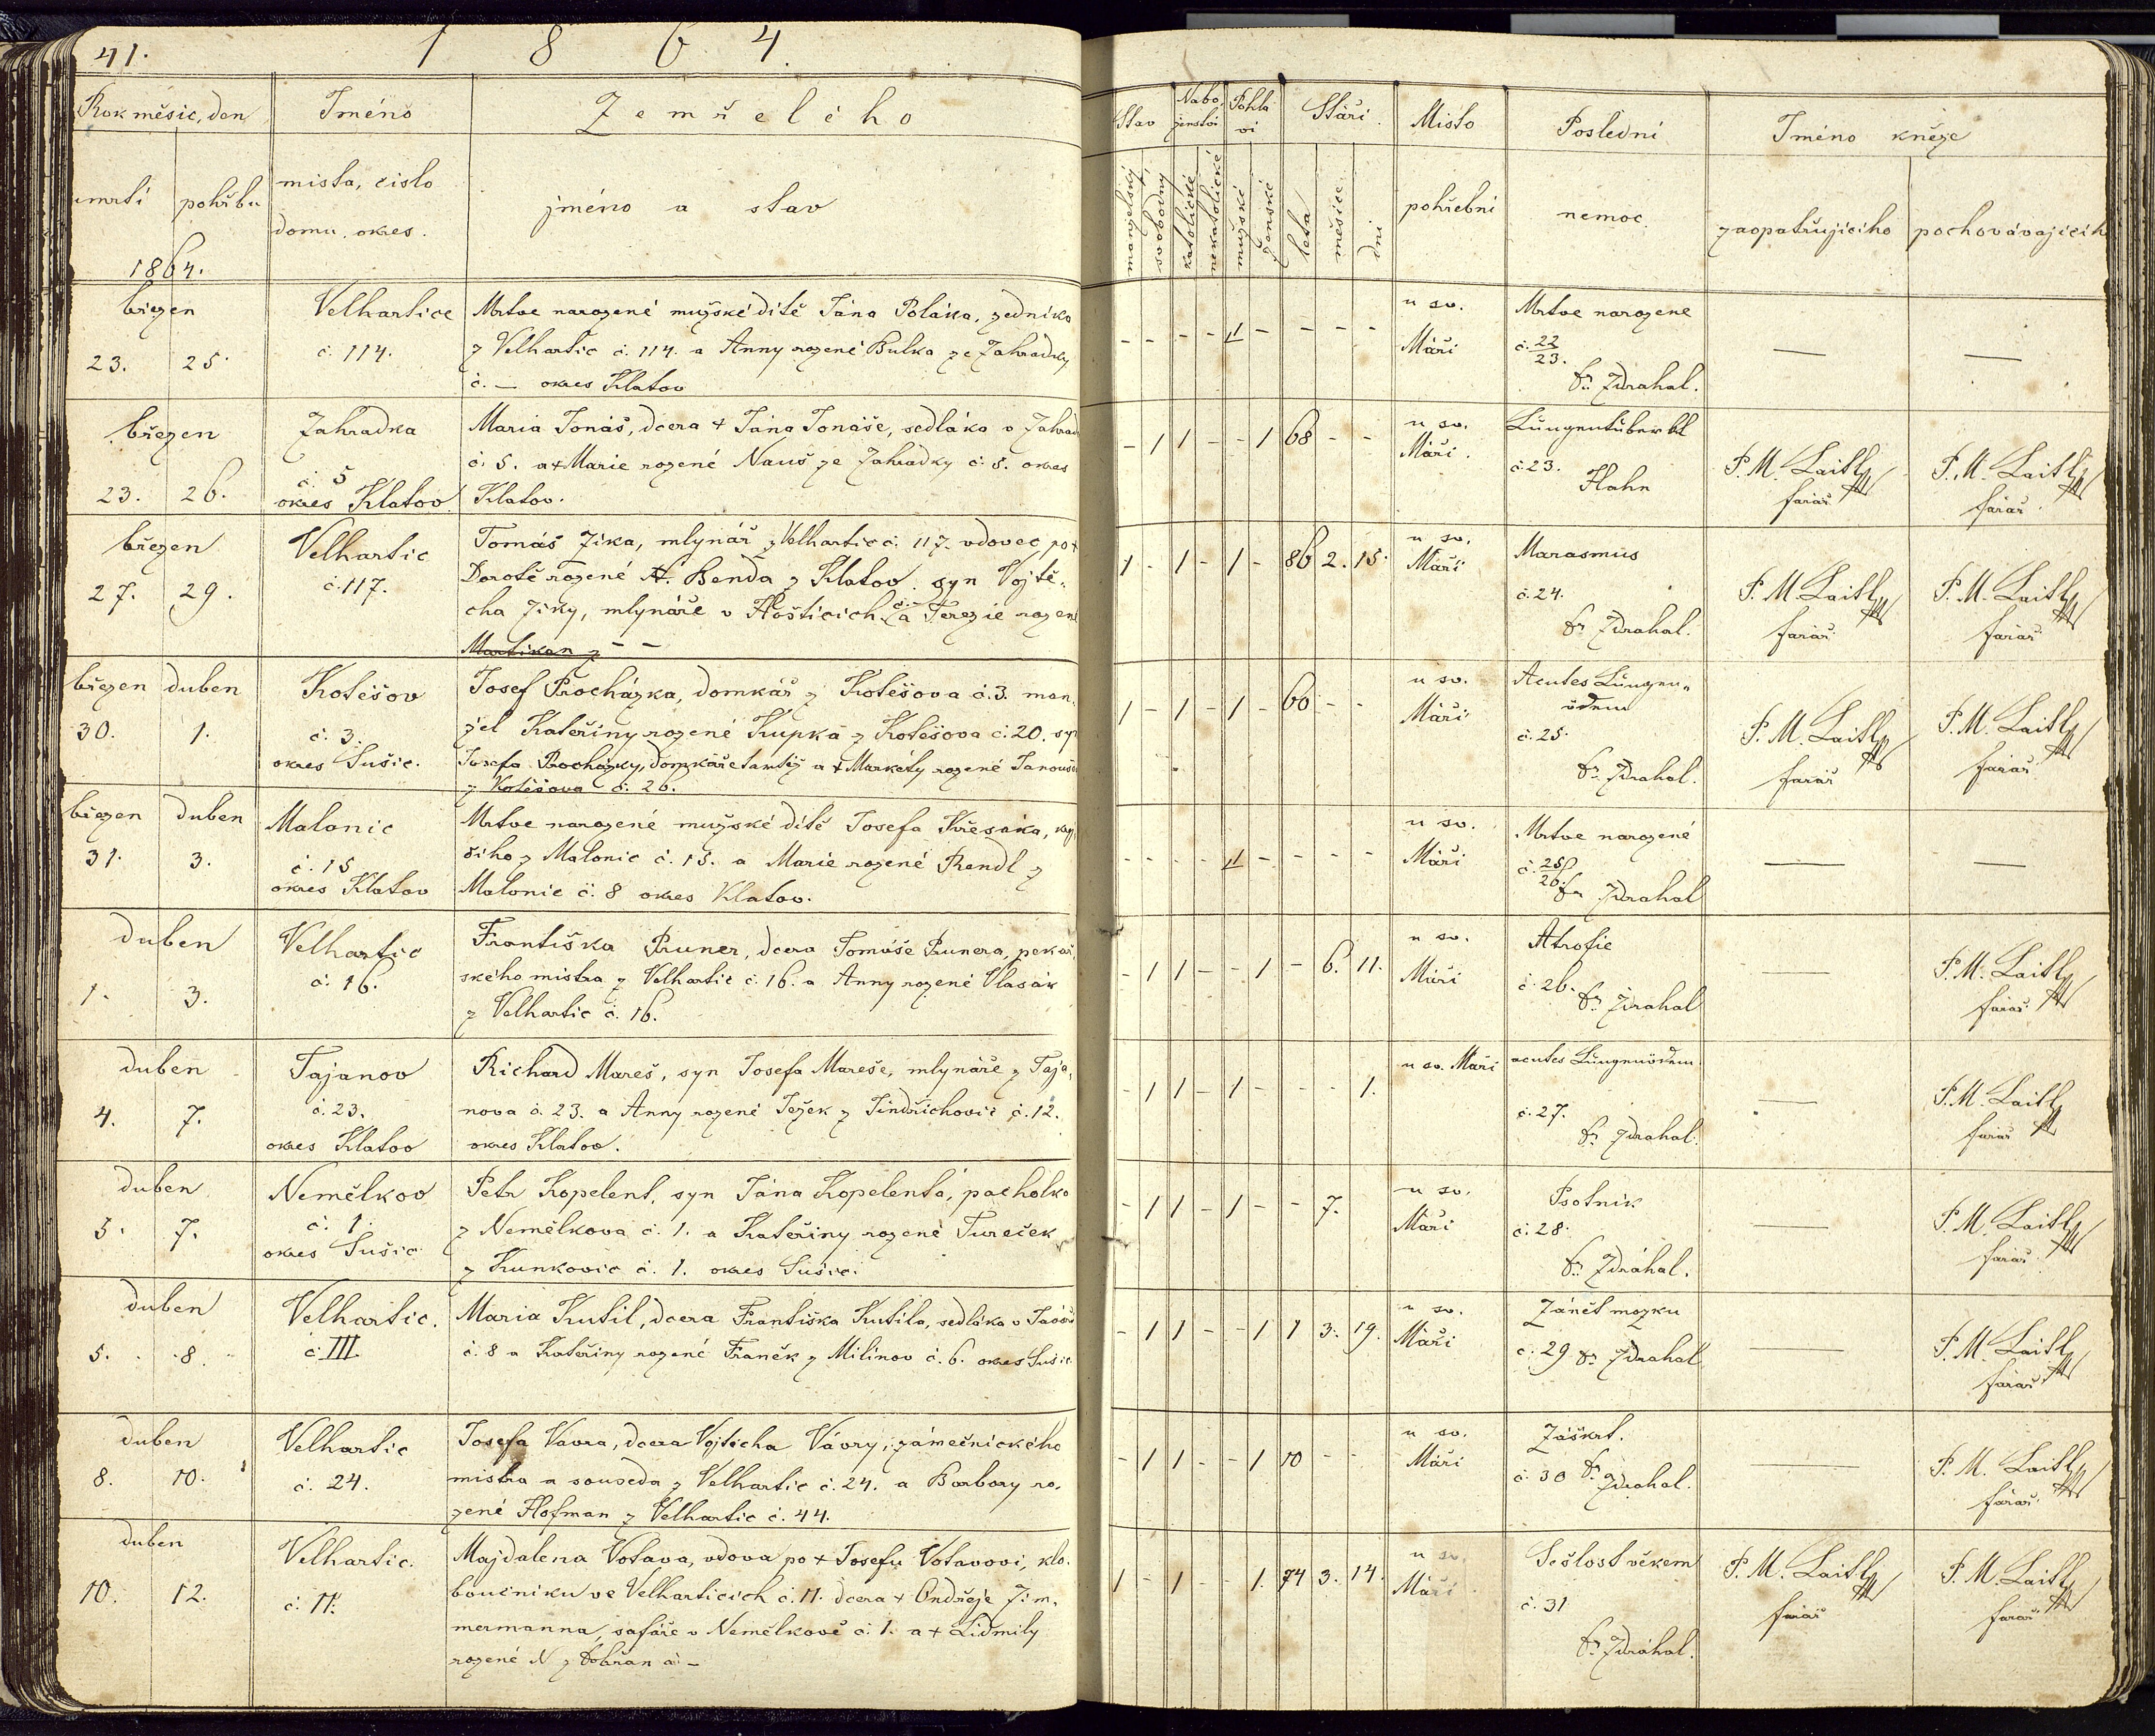 41.
1 8 6 4.
Rok měsíc, den
Jméno
Zemřelého
Stav
Nabo-
ženstvi
Pohla
vi
Stáří.
Místo
Poslední
Jméno kněze
umrtí
pohřbu
místa, číslo
domu, okres.
jméno a stav
manželský
svobodny
katolické
nekatolické
mužské
ženské
leta
měsíce
dni
pohřební
nemoc
zaopatřujícího
pochovávajícíh
1864.
březen
23. 25.
Velhartice
č. 114.
Mrtve narozené mužské dítě Jána Poláka, zedníka
z Velhartic č. 114. a Anny rozené Bulka ze Zahrádky
č. — okres Klatov
- - - - 1 - - - -
u sv.
Máří
Mrtve narozene
č. 22/23.
Fr. Zdrahal.
— —
březen
23. 26.
Zahradka
č. 5
okres Klatov
Maria Jonáš, dcera + Jána Jonáše, sedláka v Zahrad
č. 5. a + Marie rozené Nauš ze Zahrádky č. 8. okres
Klatov.
- 1 1 - - 1 68 - -
u sv.
Máří.
Lungentuberkl
č. 23.
Hahn
P. M. Laitl
farář
P. M. Laitl
farář
březen
27. 29.
Velhartic
č. 117.
Tomáš Jíka, mlynář z Velhartic č. 117. vdovec po +
Dorotě rozené A. Benda z Klatov. syn Vojtě-
cha Jíky, mlynáře v Hošticich č.- a Terezie rozen
Martikan z - -
1 - 1 - 1 - 86 2. 15.
u sv.
Máří
Marasmus
č. 24.
Fr. Zdrahal.
P. M. Laitl
farář
P. M. Laitl
farář
březen duben
30. 1.
Kotěšov
č. 3.
okres Sušic.
Josef Procházka, domkář z Kotěšova č. 3. man-
žel Kateřiny rozené Kupka z Kotěšova č. 20. syn
Josefa Procházky, domkáře tamtéž a + Markéty rozené Janouše
z Kotěšova č. 26.
1 - 1 - 1 - 60 - -
u sv.
Máří
Acutes Lungen-
ödem
č. 25.
Fr. Zdrahal.
P. M. Laitl
farář
P. M. Laitl
farář
březen duben
31. 3.
Malonic
č. 15
okres Klatov
Mrtve narozené mužské dítě Josefa Křesáka, krej
čího z Malonic č. 15. a Marie rozené Rendl z
Malonic č. 8 okres Klatov.
- - - - 1 - - - -
u sv.
Máří
Mrtve narozené
č. 25/26.
Fr. Zdrahal
— —
duben
1. 3.
Velhartic
č. 16.
Františka Pruner, dcera Tomáše Prunera, pekař-
ského mistra z Velhartic č. 16. a Anny rozené Vlasák
z Velhartic č. 16.
- 1 1 - - 1 - 6. 11.
u sv.
Máří
Atrofie
č. 26.
Fr. Zdrahal
—
P. M. Laitl
farář
duben
4. 7.
Tajanov
č. 23.
okres Klatov
Richard Mareš, syn Josefa Mareše, mlynáře z Taja-
nova č. 23. a Anny rozené Ježek z Jindřichovic č. 12.
okres Klatov.
- 1 1 - 1 - - - 1.
u sv. Máří
acutes Lungenödem
č. 27.
Fr. Zdrahal.
—
P. M. Laitl
farář
duben
5. 7.
Nemělkov
č. 1.
okres Sušic
Petr Kopelent, syn Jána Kopelenta, pacholka
z Nemělkova č. 1. a Kateřiny rozené Tureček
z Kunkovic č. 1. okres Sušic.
- 1 1 - 1 - - 7.
u sv.
Máří
Psotník
č. 28.
Fr. Zdráhal.
—
P. M. Laitl
farář
duben
5. 8.
Velhartic.
č. III
Maria Kutil, dcera Františka Kutila, sedláka v
č. 8 a Kateřiny rozené Franěk z Milínov č. 6. okres Sušic.
- 1 1 - - 1 1 3. 19.
u sv.
Máří
Zánět mozku
č. 29 Fr. Zdrahal
—
P. M. Laitl
farář
duben
8. 10.
Velhartic
č. 24.
Josefa Vávra, dcera Vojtěcha Vávry, zámečnického
mistra a souseda z Velhartic č. 24. a Barbory ro-
zené Hofman z Velhartic č. 44.
- 1 1 - - 1 10 - -
u sv.
Máří
Záškrt.
č. 30 Fr. Zdrahal.
—
P. M. Laitl
farář
duben
10. 12.
Velhartic.
č. 11.
Majdalena Votava, vdova po + Josefu Votavovi, klo-
boučníku ve Velharticích č. 11. dcera + Ondřeje Zim-
mermanna, šafáře v Nemělkově č. 1. a + Lidmily
rozené N z Dobřan č. -
1 - 1 - - 1. 74 3. 14.
u sv.
Máří
Sešlost věkem
č. 31
Fr. Zdráhal.
P. M. Laitl
farář
P. M. Laitl
farář